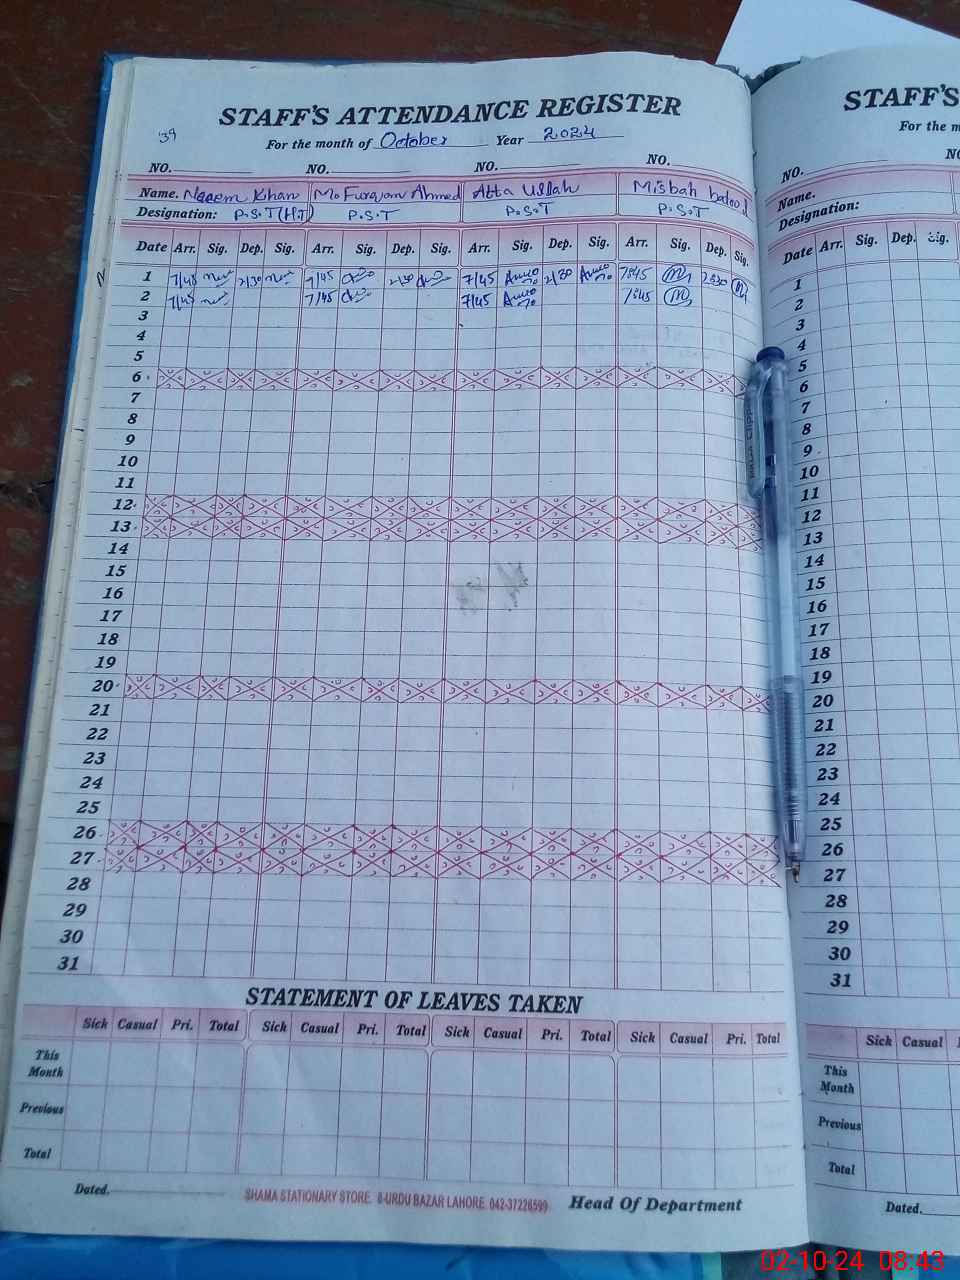 STAFF'S ATTENDANCE REGISTER
'39
For the month of October Year 2024
NO. NO. NO. NO.
Name. Naeem Khan M. Furqan Ahmed Atta Ullah Misbah
Designation: P.S.T (H.T) P.S.T P.S.T P.S.T
Date Arr. Sig. Dep. Sig. Arr. Sig. Dep. Sig. Arr. Sig. Dep. Sig. Arr. Sig. Dep. Sig.
1 7/45 2/30 7/45 2/30 7/45 2/30 7:45 2:30
2 7/45 7/45 7/45 7:45
3
4
5
6
7
8
9
10
11
12
13
14
15
16
17
18
19
20
21
22
23
24
25
26
27
28
29
30
31
STATEMENT OF LEAVES TAKEN
Sick Casual Pri. Total Sick Casual Pri. Total Sick Casual Pri. Total Sick Casual Pri. Total
This
Month
Previous
Total
Dated.
SHAMA STATIONARY STORE. 8-URDU BAZAR LAHORE. 042-37226599
Head Of Department
STAFF'S
For the m
NO.
Name.
Designation:
Date Arr. Sig. Dep. Sig.
1
2
3
4
5
6
7
8
9
10
11
12
13
14
15
16
17
18
19
20
21
22
23
24
25
26
27
28
29
30
31
Sick Casual
This
Month
Previous
Total
Dated.
02-10-24 08:43